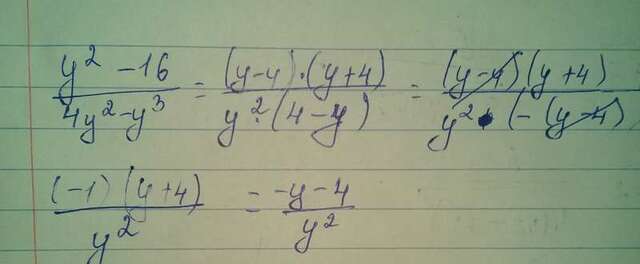 (y² - 16)/(4y² - y³) = ((y-4)·(y+4))/(y²·(4-y)) = ((y-4)(y+4))/(y²·(-(y-4))
((-1)(y+4))/y² = (-y-4)/y²